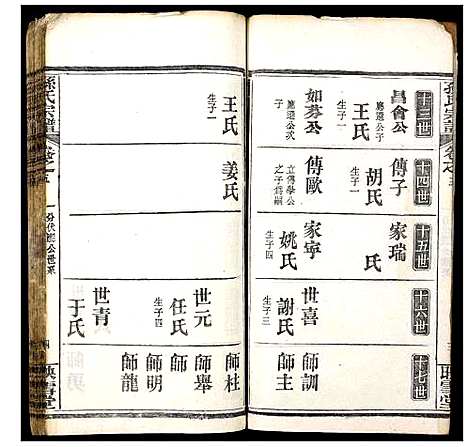 孫氏宗譜
卷之五
映雪堂
十三世
昌會公
應選公長子
王氏
生子一
如芬公
應選公次子
王氏
生子一
十四世
傳子
胡氏
生子一
傳歐
立傳學公之子為嗣
姜氏
生子一
十五世
家瑞
氏
家寧
姚氏
生子四
十六世
世喜
謝氏
生子三
世元
任氏
生子四
世青
于氏
十七世
師訓
師主
師柱
師舉
師明
師龍
孫氏宗譜
卷之五
公世系
映雪堂